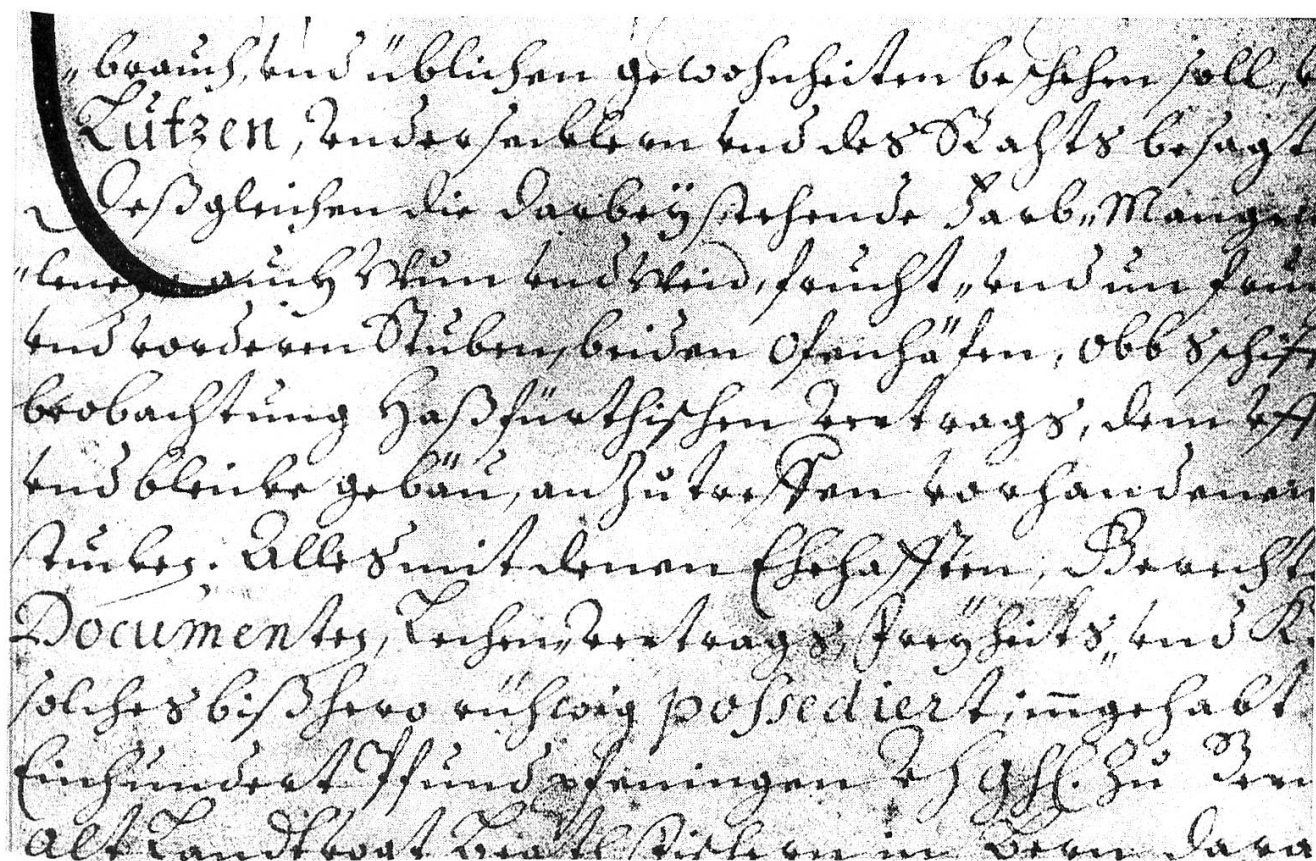 „brauch, und üblichen gewohnheiten beschehen soll,
Lützen, undersecklern und des Rahts besagt
Deßgleichen die darbey stehende Farb„Mange
auch Wun und Weid, frucht„ und un fru
und vorderen Stuben, beiden Ofenhäfen, obbschi
beobachtung Haßfürthischen vertrags, dem
und bleike gebäu, anzutreffen vorhandenen
stucken. Alles mit denen Ehehafften, Berecht
Documenten, Lechen„ vertrags, Freyheits„ und K
solches bißhero rühwig possediert, inngehabt
Einhundert Pfund pfeningen zu Bern
alt Landtvogt in Bern dar